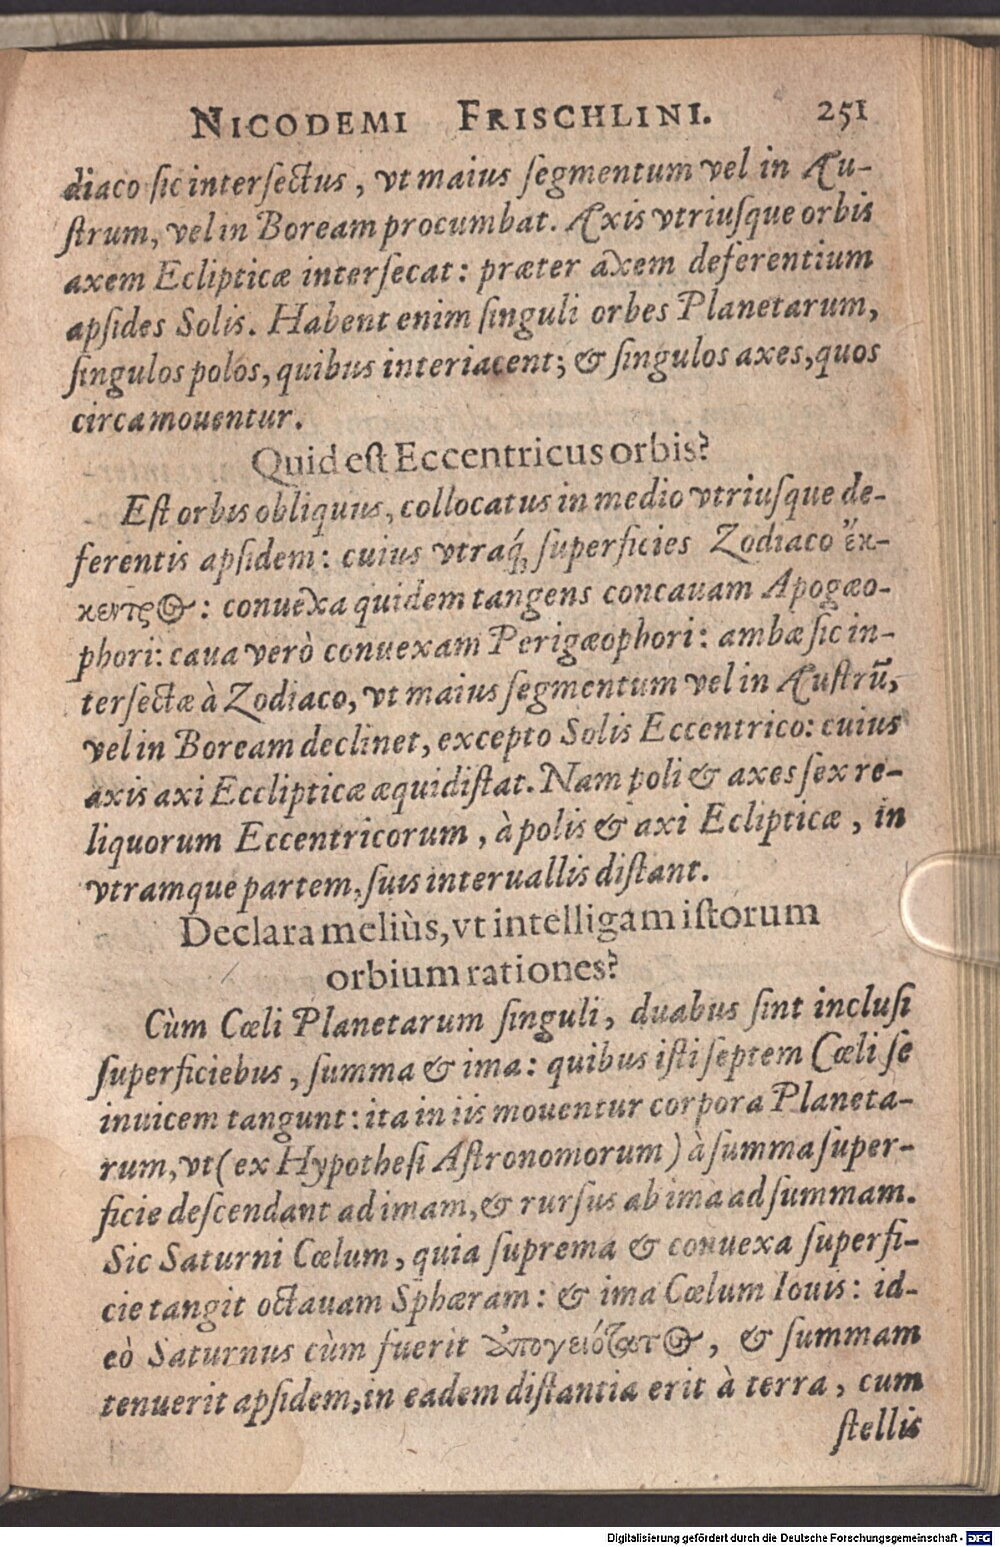 NICODEMI FRISCHLINI. 251
diaco sic intersectus, vt maius segmentum vel in Au-
strum, vel in Boream procumbat. Axis vtriusque orbis
axem Eclipticæ intersecat: præter axem deferentium
apsides Solis. Habent enim singuli orbes Planetarum,
singulos polos, quibus interiacent; & singulos axes, quos
circa mouentur.
Quid est Eccentricus orbis?
Est orbis obliquus, collocatus in medio vtriusque de-
ferentis apsidem: cuius vtraq́; superficies Zodiaco ἔκ-
κεντρος: conuexa quidem tangens concauam Apogæo-
phori: caua verò conuexam Perigæophori: ambæ sic in-
tersectæ à Zodiaco, vt maius segmentum vel in Austrũ,
vel in Boream declinet, excepto Solis Eccentrico: cuius
axis axi Ecclipticæ æquidistat. Nam poli & axes sex re-
liquorum Eccentricorum, à polis & axi Eclipticæ, in
vtramque partem, suis interuallis distant.
Declara meliùs, vt intelligam istorum
orbium rationes?
Cùm Cœli Planetarum singuli, duabus sint inclusi
superficiebus, summa & ima: quibus isti septem Cœli se
inuicem tangunt: ita in iis mouentur corpora Planeta-
rum, vt (ex Hypothesi Astronomorum) à summa super-
ficie descendant ad imam, & rursus ab ima ad summam.
Sic Saturni Cœlum, quia suprema & conuexa superfi-
cie tangit octauam Sphæram: & ima Cœlum Iouis: id-
eò Saturnus cùm fuerit ἀπογειότατος, & summam
tenuerit apsidem, in eadem distantia erit à terra, cum
stellis
Digitalisierung gefördert durch die Deutsche Forschungsgemeinschaft - DFG